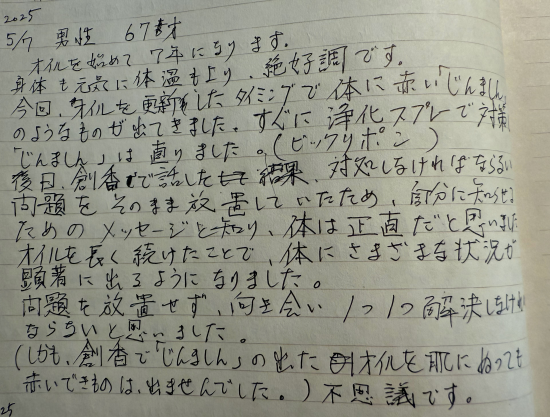 2025
5/7 男性 67才
オイルを始めて 7年になります。
身体も元気に体温も上り、絶好調です。
今回、オイルを更新したタイミングで体に赤い「じんましん」
のようなものが出てきました。すぐに浄化スプレーで対策し
「じんましん」は直りました。(ビックリポン)
後日、創香で話した結果、対処しなければならない
問題をそのまま放置していたため、自分に知らせる
ためのメッセージと知り、体は正直だと思いました
オイルを長く続けたことで、体にさまざまな状況が
顕著に出るようになりました。
問題を放置せず、向き合い 1つ1つ解決しなければ
ならないと思いました。
(しかも、創香で「じんましん」の出た オイルを肌にぬっても
赤いできものは、出ませんでした。) 不思議です。
25